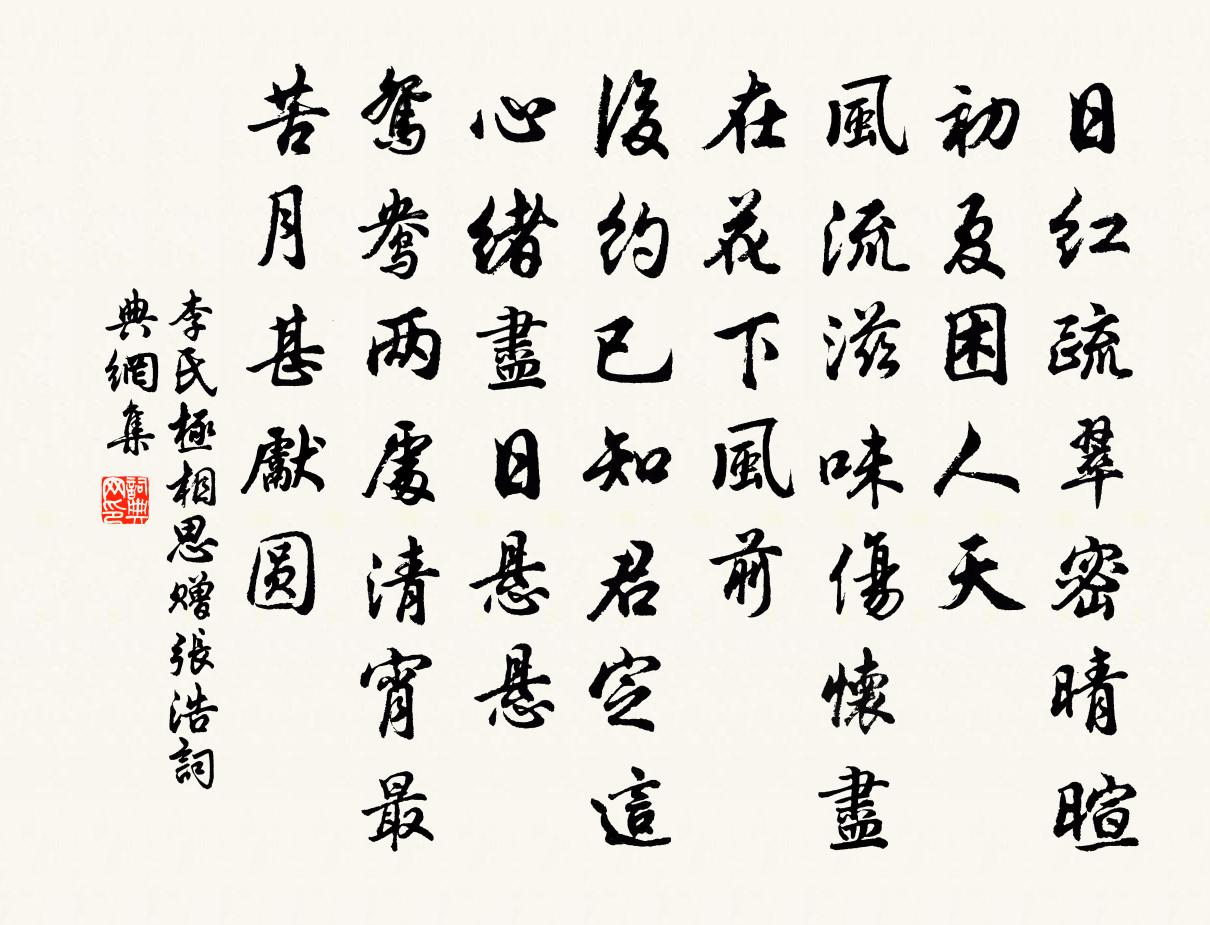 日紅疏翠密晴暄
初夏困人天
風流滋味傷懷盡
在花下風前
後約已知君定這
心緒盡日悬悬
鴛鴦两處清宵最
苦月甚獻圓
李氏極相思贈張浩詞
典網集
詞典网印